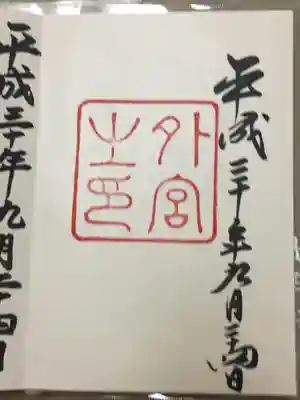 平成三十年九月二十四日
外宮
之印
平成三十年九月二十四日